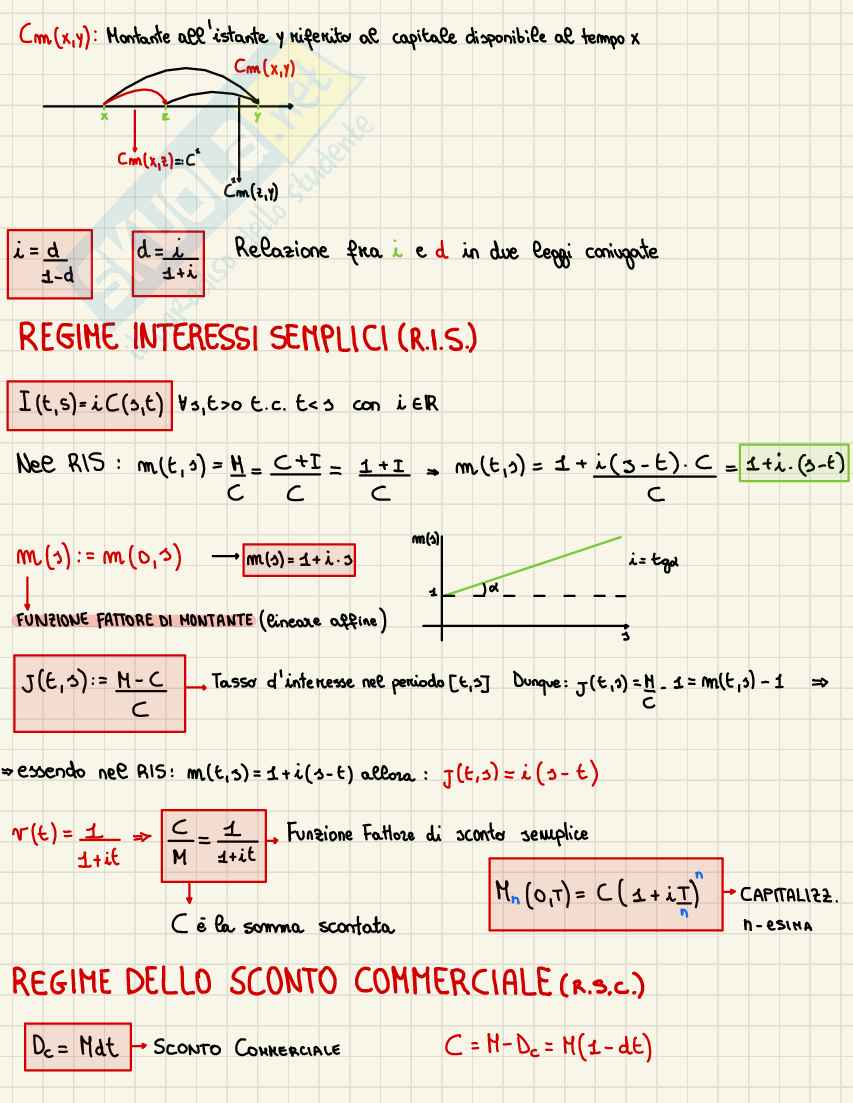 Cm(x,y): Montante all'istante y riferito al capitale disponibile al tempo x
Cm(x,y)
x z y
Cm(x,z)=C*
C*m(z,y)
SKUOLA.net
i = d/(1-d) d = i/(1+i) Relazione fra i e d in due leggi coniugate
REGIME INTERESSI SEMPLICI (R.I.S.)
I(t,s)=iC(s,t) ∀s,t>0 t.c. t<s con i∈R
Nel RIS: m(t,s) = M/C = (C+I)/C = (1+I)/C → m(t,s) = 1 + (i(s-t)·C)/C = 1+i·(s-t)
m(s)
m(s) := m(0,s) → m(s)=1+i·s
i=tgα
1 α
FUNZIONE FATTORE DI MONTANTE (lineare affine)
s
J(t,s) := (M-C)/C → Tasso d'interesse nel periodo [t,s] Dunque: J(t,s) = M/C - 1 = m(t,s) - 1 ⇒
⇒ essendo nel RIS: m(t,s) = 1+i(s-t) allora: J(t,s) = i(s-t)
v(t) = 1/(1+it) ⇒ C/M = 1/(1+it) → Funzione Fattore di sconto semplice
Mn(0,T) = C(1+i T/n)^n → CAPITALIZZ.
n-ESIMA
C è la somma scontata
REGIME DELLO SCONTO COMMERCIALE (R.S.C.)
Dc = Mdt → SCONTO COMMERCIALE C = M-Dc = M(1-dt)